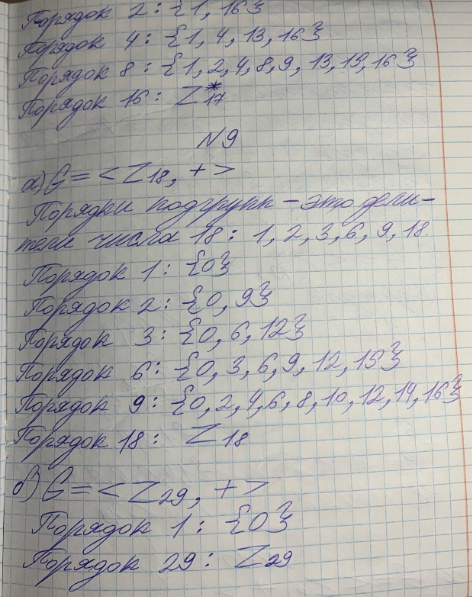 Порядок 2: {1, 16}
Порядок 4: {1, 4, 13, 16}
Порядок 8: {1, 2, 4, 8, 9, 13, 15, 16}
Порядок 16: Z*17
№9
а) G = < Z18, + >
Порядки подгрупп - это дели-
тели числа 18: 1, 2, 3, 6, 9, 18
Порядок 1: {0}
Порядок 2: {0, 9}
Порядок 3: {0, 6, 12}
Порядок 6: {0, 3, 6, 9, 12, 15}
Порядок 9: {0, 2, 4, 6, 8, 10, 12, 14, 16}
Порядок 18: Z18
б) G = < Z29, + >
Порядок 1: {0}
Порядок 29: Z29